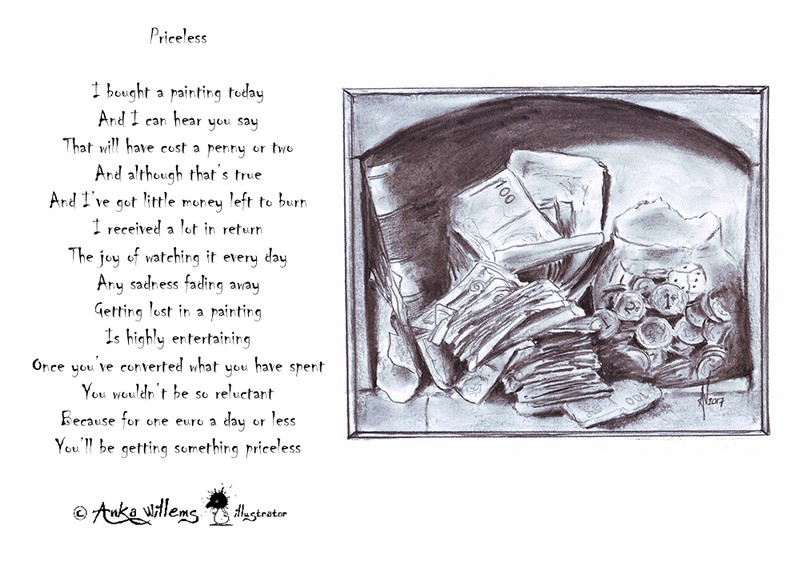 Priceless
I bought a painting today
And I can hear you say
That will have cost a penny or two
And although that's true
And I've got little money left to burn
I received a lot in return
The joy of watching it every day
Any sadness fading away
Getting lost in a painting
Is highly entertaining
Once you've converted what you have spent
You wouldn't be so reluctant
Because for one euro a day or less
You'll be getting something priceless
© Anka Willems illustrator
100
1
2017